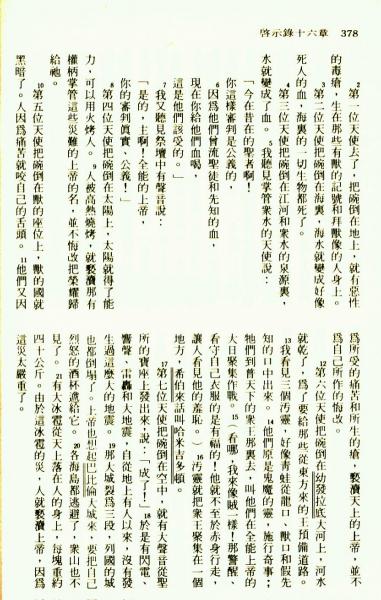 啓示錄十六章　378
2 第一位天使去了，把碗倒在地上，就有惡性
的毒瘡，生在那些有獸的記號和拜獸像的人身上。
3 第二位天使把碗倒在海裏，海水就變成好像
死人的血，海裏的一切生物都死了。
4 第三位天使把碗倒在江河和衆水的泉源裏，
水就變成了血。5 我聽見掌管衆水的天使說：
「今在昔在的聖者啊！
你這樣審判是公義的，
6 因爲他們曾流聖徒和先知的血，
現在你給他們血喝，
這是他們該受的。」
7 我又聽見祭壇中有聲音說：
「是的，主啊！全能的上帝，
你的審判眞實、公義！」
8 第四位天使把碗倒在太陽上，太陽就得了能
力，可以用火烤人。9 人被高熱燒烤，就褻瀆那有
權柄掌管這些災難的上帝的名，並不悔改把榮耀歸
給祂。
10 第五位天使把碗倒在獸的座位上，獸的國就
黑暗了。人因爲痛苦就咬自己的舌頭。11 他們又因
爲所受的痛苦和所生的瘡，褻瀆天上的上帝，並不
爲自己所作的悔改。
12 第六位天使把碗倒在幼發拉底大河上，河水
就乾了，爲了要給那些從東方來的王預備道路。
13 我看見三個汚靈，好像靑蛙從龍口、獸口和假先
知的口中出來。14 他們原是鬼魔的靈，施行奇事；
牠們到普天下的衆王那裏去，叫他們在全能上帝的
大日聚集作戰。15（看哪，我來像賊一樣！那警醒、
看守自己衣服的是有福的！他就不至於赤身行走，
讓人看見他的羞恥。）16 汚靈就把衆王聚集在一個
地方，希伯來話叫哈米吉多頓。
17 第七位天使把碗倒在空中，就有大聲音從聖
所的寶座上發出來，說：「成了！」18 於是有閃電、
響聲、雷轟和大地震，自從地上有人以來，沒有發
生過這麼大的地震。19 那大城裂爲三段，列國的城
也都倒塌了。上帝也想起巴比倫大城來，要把自己
烈怒的酒杯遞給它。20 各海島都逃避了，衆山也不
見了。21 有大冰雹從天上落在人的身上，每塊重約
四十公斤。由於這冰雹的災，人就褻瀆上帝，因爲
這災太嚴重了。